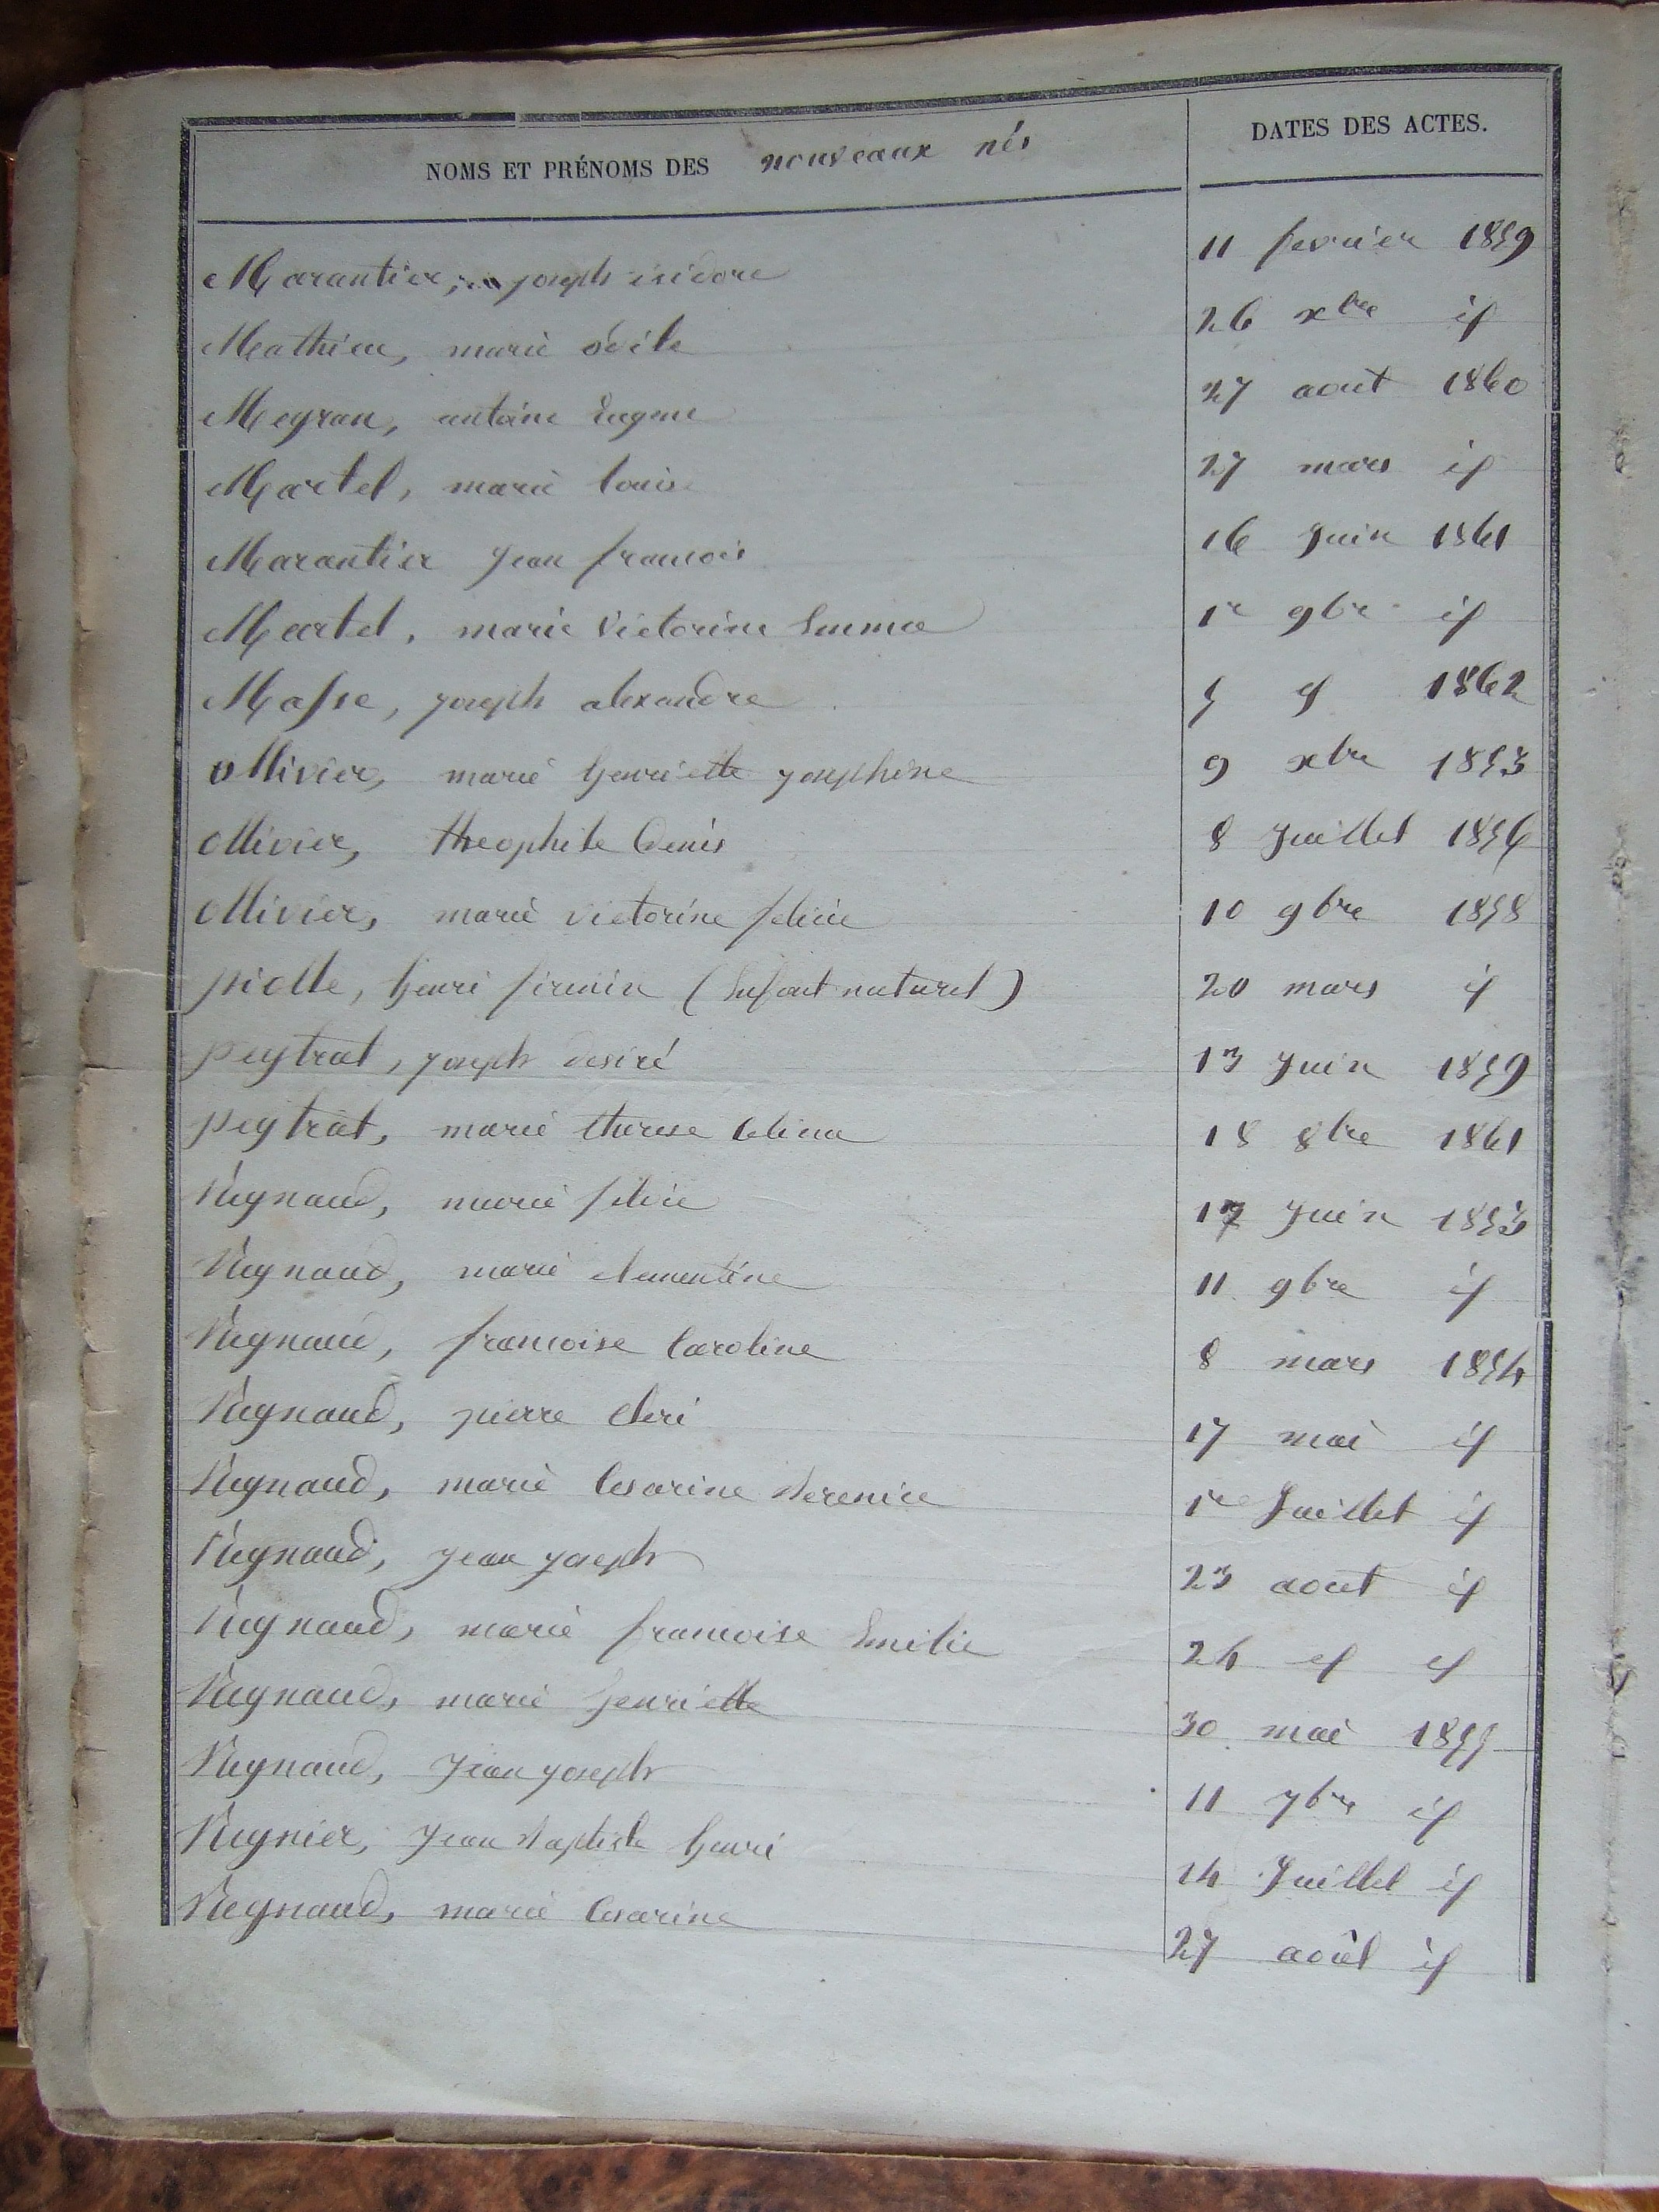 NOMS ET PRÉNOMS DES nouveaux nés DATES DES ACTES.
Marantier, joseph isidore 11 fevrier 1859
Mathieu, marie odile 26 xbre id
Meyran, antoine Eugene 27 aout 1860
Martel, marie louise 27 mars id
Marantier Jean francois 16 Juin 1861
Martel, marie Victorine Emma 1er 9bre id
Masse, joseph alexandre 5 id 1862
ollivier, marie henriette josephine 9 xbre 1853
ollivier, theophile Denis 8 Juillet 1856
ollivier, marie victorine felicie 10 9bre 1858
piolle, henri firmin (Enfant naturel) 20 mars id
peytrat, joseph desiré 13 Juin 1859
peytrat, marie therese Celina 18 8bre 1861
Reynaud, marie felicie 17 Juin 1853
Reynaud, marie clementine 11 9bre id
Reynaud, francoise Caroline 8 mars 1854
Reynaud, pierre cheri 17 mai id
Reynaud, marie Cesarine Berenice 1er Juillet id
Reynaud, jean joseph 23 aout id
Reynaud, marie francoise Emilie 24 id id
Reynaud, marie henriette 30 mai 1855
Reynaud, Jean joseph 11 7bre id
Reynier, Jean Baptiste henri 14 Juillet id
Reynaud, marie Cesarine 27 août id